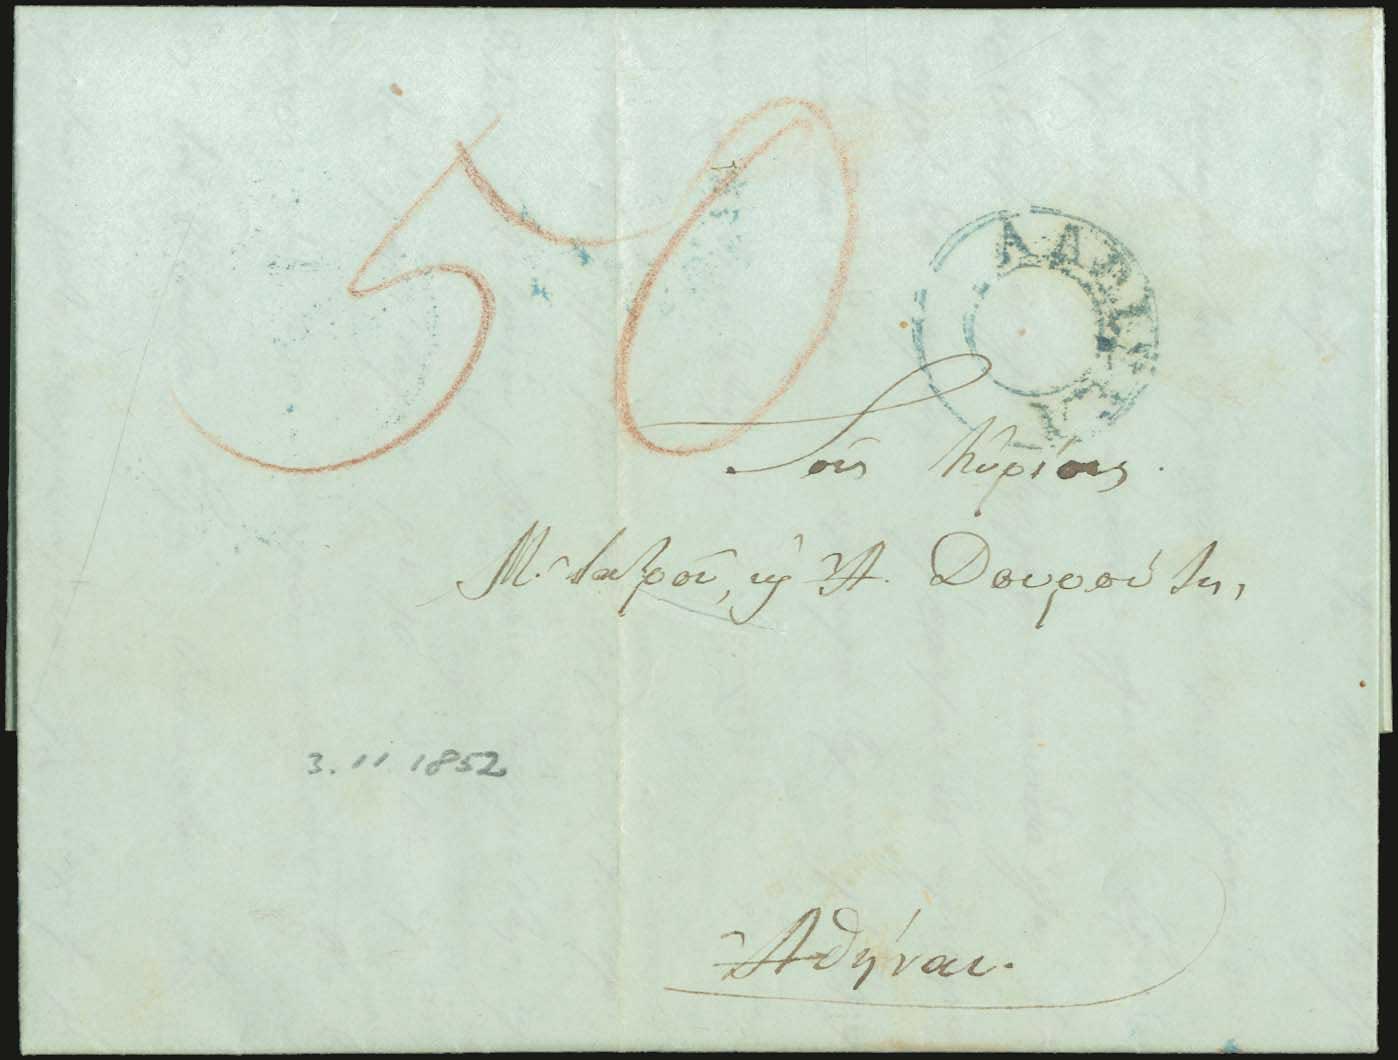 50
Τοῖς Κυρίοις
Μ. Ἰατροῦ, κ Ἀ. Δουρούτῃ,
3. 11 1852
Ἀθήναι.